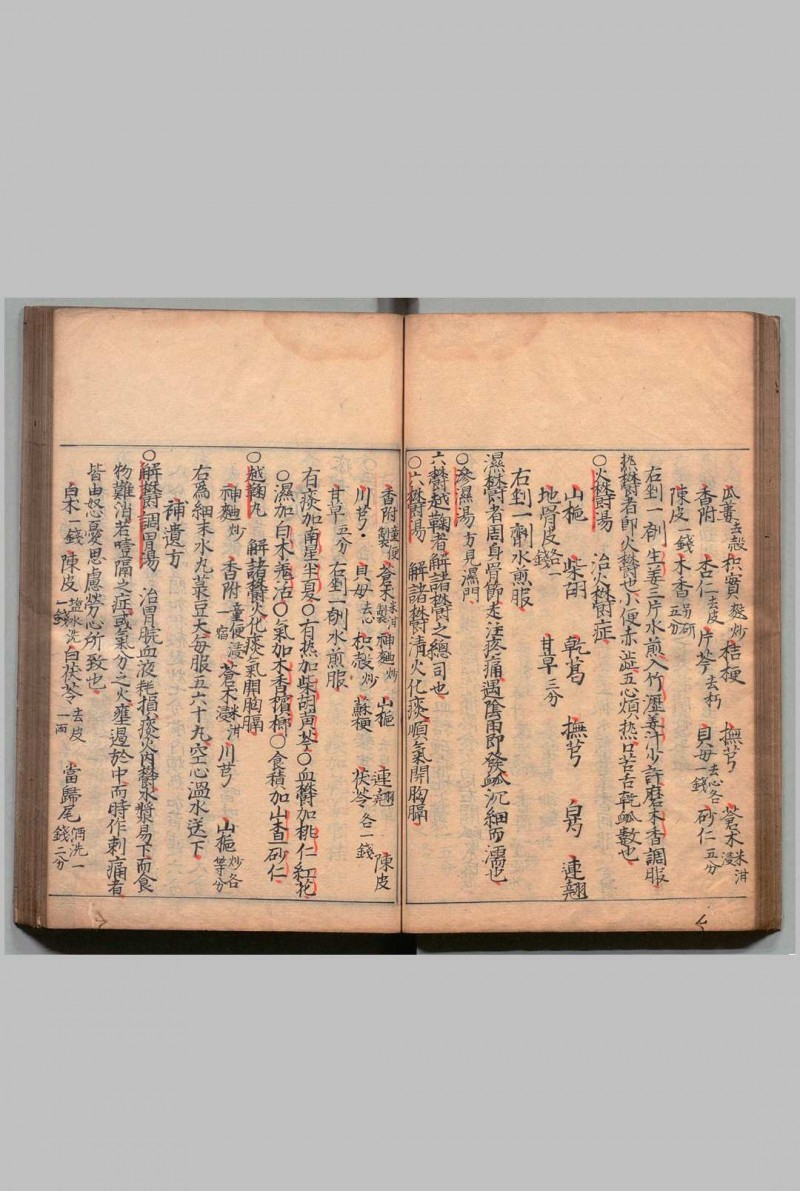 瓜蔞去殼 枳實麩炒 桔梗 撫芎 蒼朮米泔浸
香附 杏仁去皮 片芩去朽 貝母去心各一錢 砂仁五分
陳皮一錢 木香另研五分
右剉一剤生姜三片水煎入竹瀝姜汁少許磨木香調服
熱欝者即火欝也小便赤澁五心煩熱口苦舌乾脈数也
○火欝湯 治火欝症
山梔 柴胡 乾葛 撫芎 白芍 連翹
地骨皮各一錢 甘草三分
右剉一劑水煎服
濕欝者周身骨節走注疼痛遇陰雨即發脈沉細而濡也
○滲濕湯方見濕門
六欝越鞠者解諸欝之總司也
○六欝湯 解諸欝清火化痰順氣開胸膈
香附童便製 蒼朮米泔製 神麯炒 山梔 連翹 陳皮
川芎 貝母去心 枳殼炒 蘇梗 茯苓各一錢
甘草五分 右剉一剤水煎服
有痰加南星半夏○有热加柴胡黄芩○血欝加桃仁紅花
○濕加白朮羗活○氣加木香檳榔○食積加山查砂仁
○越鞠丸 解諸欝火化痰氣開胸膈
神麯炒 香附童便浸一宿 蒼朮米泔浸 川芎 山梔炒各等分
右為細末水丸菉豆大每服五六十丸空心溫水送下
補遺方
○解欝調胃湯 治胃脘血液耗損痰火內欝水漿易下而食
物難消若噎隔之症或氣分之火壅遏於中而時作刺痛者
皆由怒憂思慮勞心所致也
白朮一錢 陳皮塩水洗一錢 白茯苓去皮一兩 當歸尾酒洗一錢二分